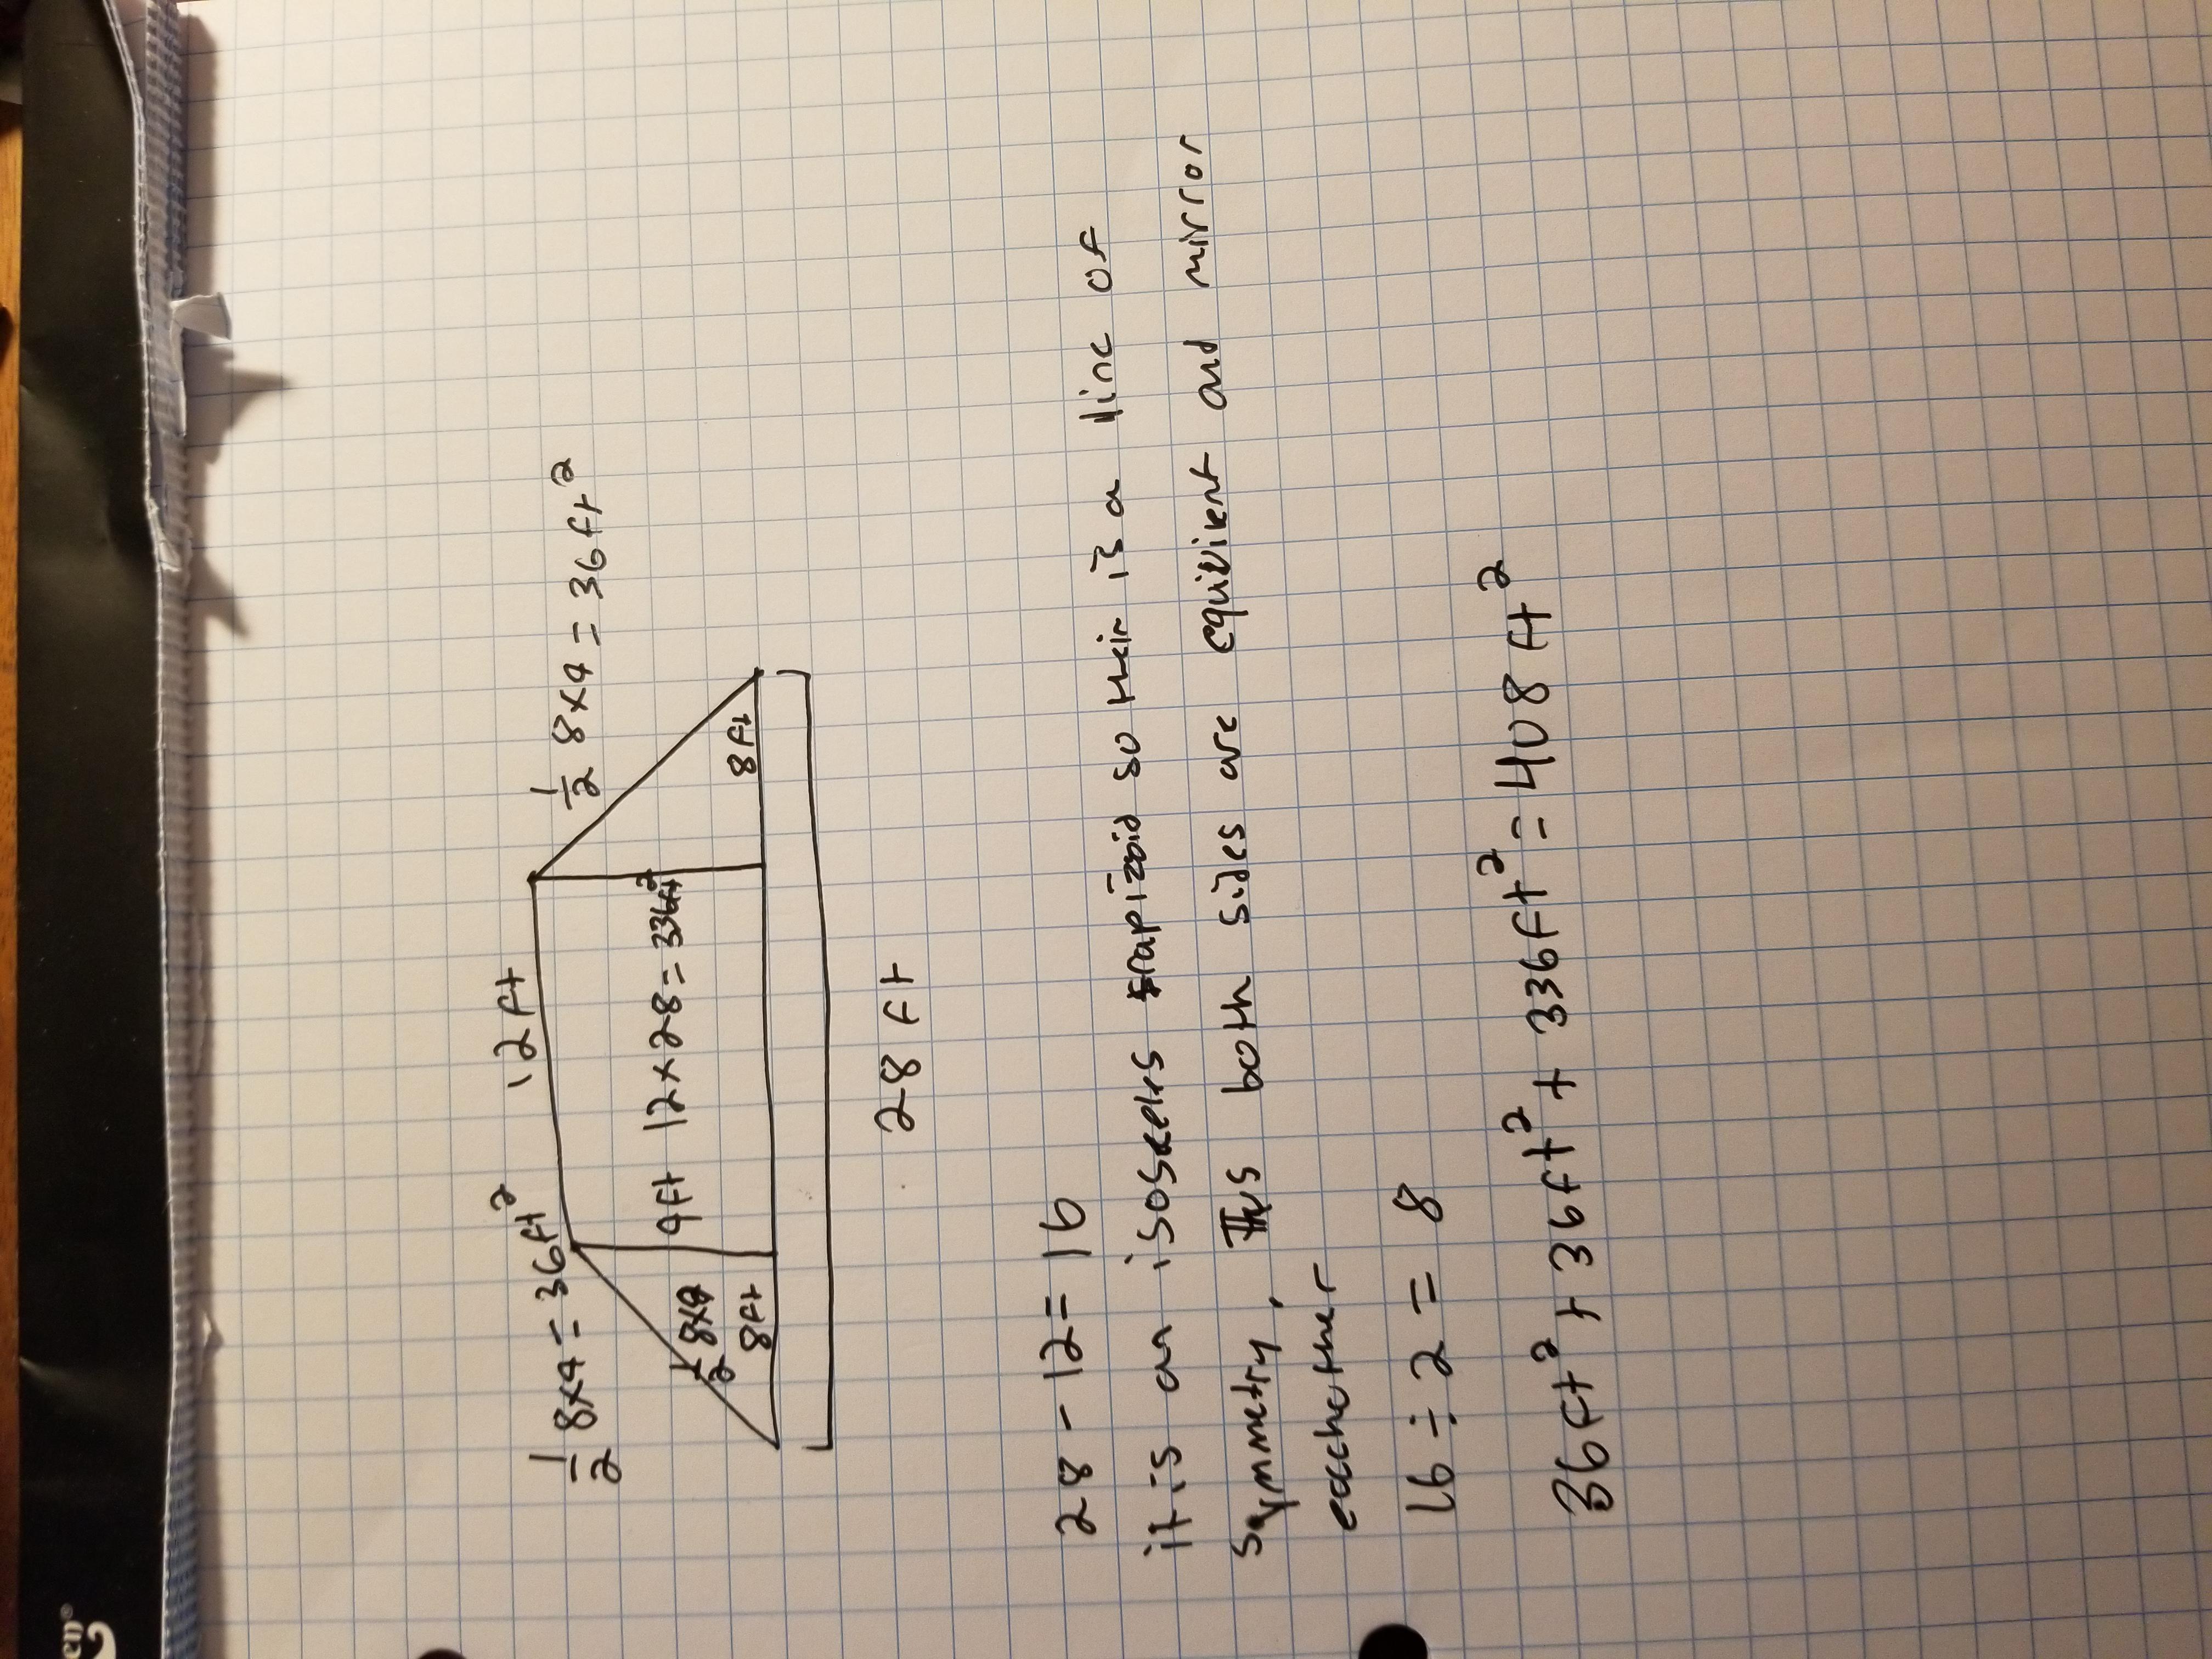 12 ft
1/2 8x9 = 36 ft²
1/2 8x9 = 36 ft²
9ft 12x28 = 336ft²
1/2 8x9
8ft
8ft
28 ft
28 - 12 = 16
it is an isoscelis trapizoid so their is a line of
symmetry, thus both sides are equivilent and mirror
eachother
16 ÷ 2 = 8
36ft² + 36ft² + 336ft² = 408 ft²